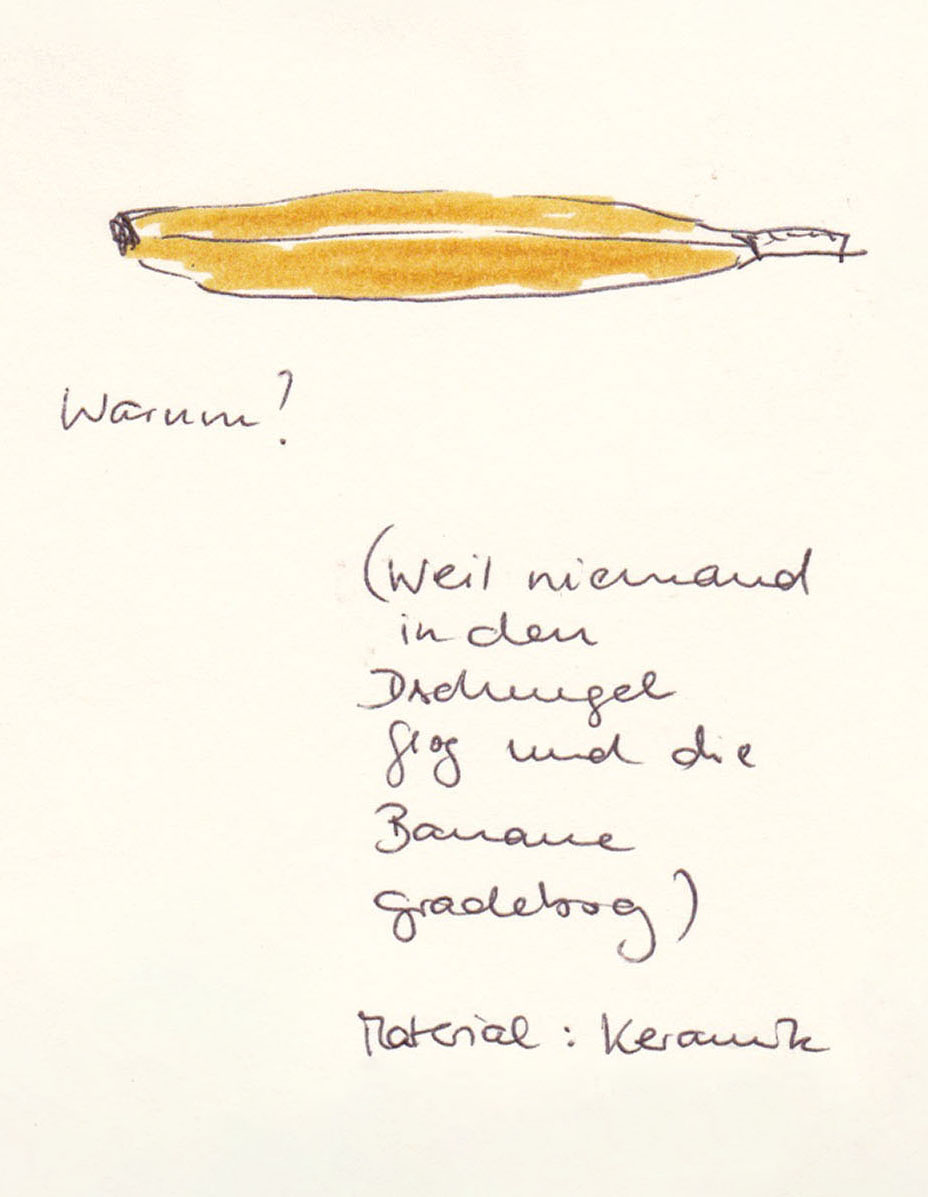 Warum?
(Weil niemand
in den
Dschungel
flog und die
Banane
gradebog)
Material: Keramik